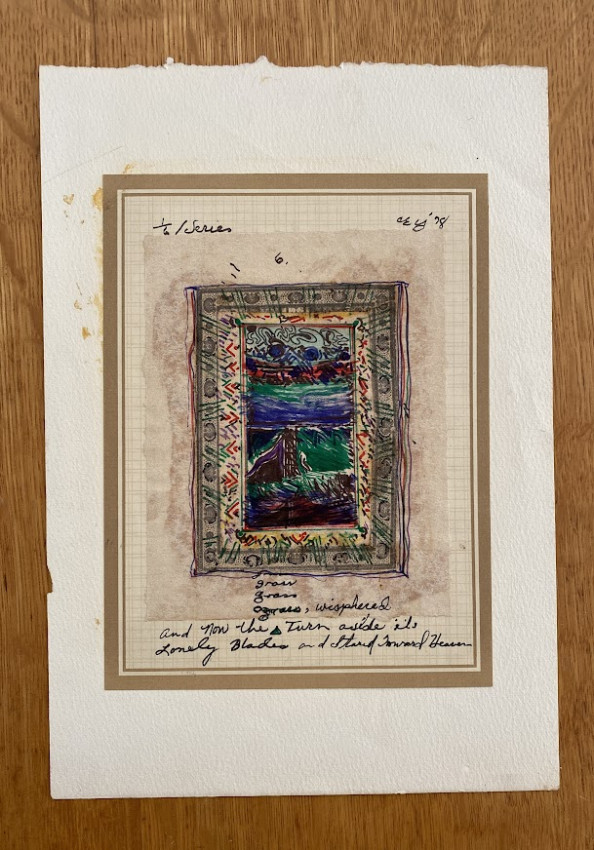 1/6 / Series
'78
6.
grass
grass
grass, wisphered
and now the Turn aside its
Lonely Blades and Stared Toward Heaven